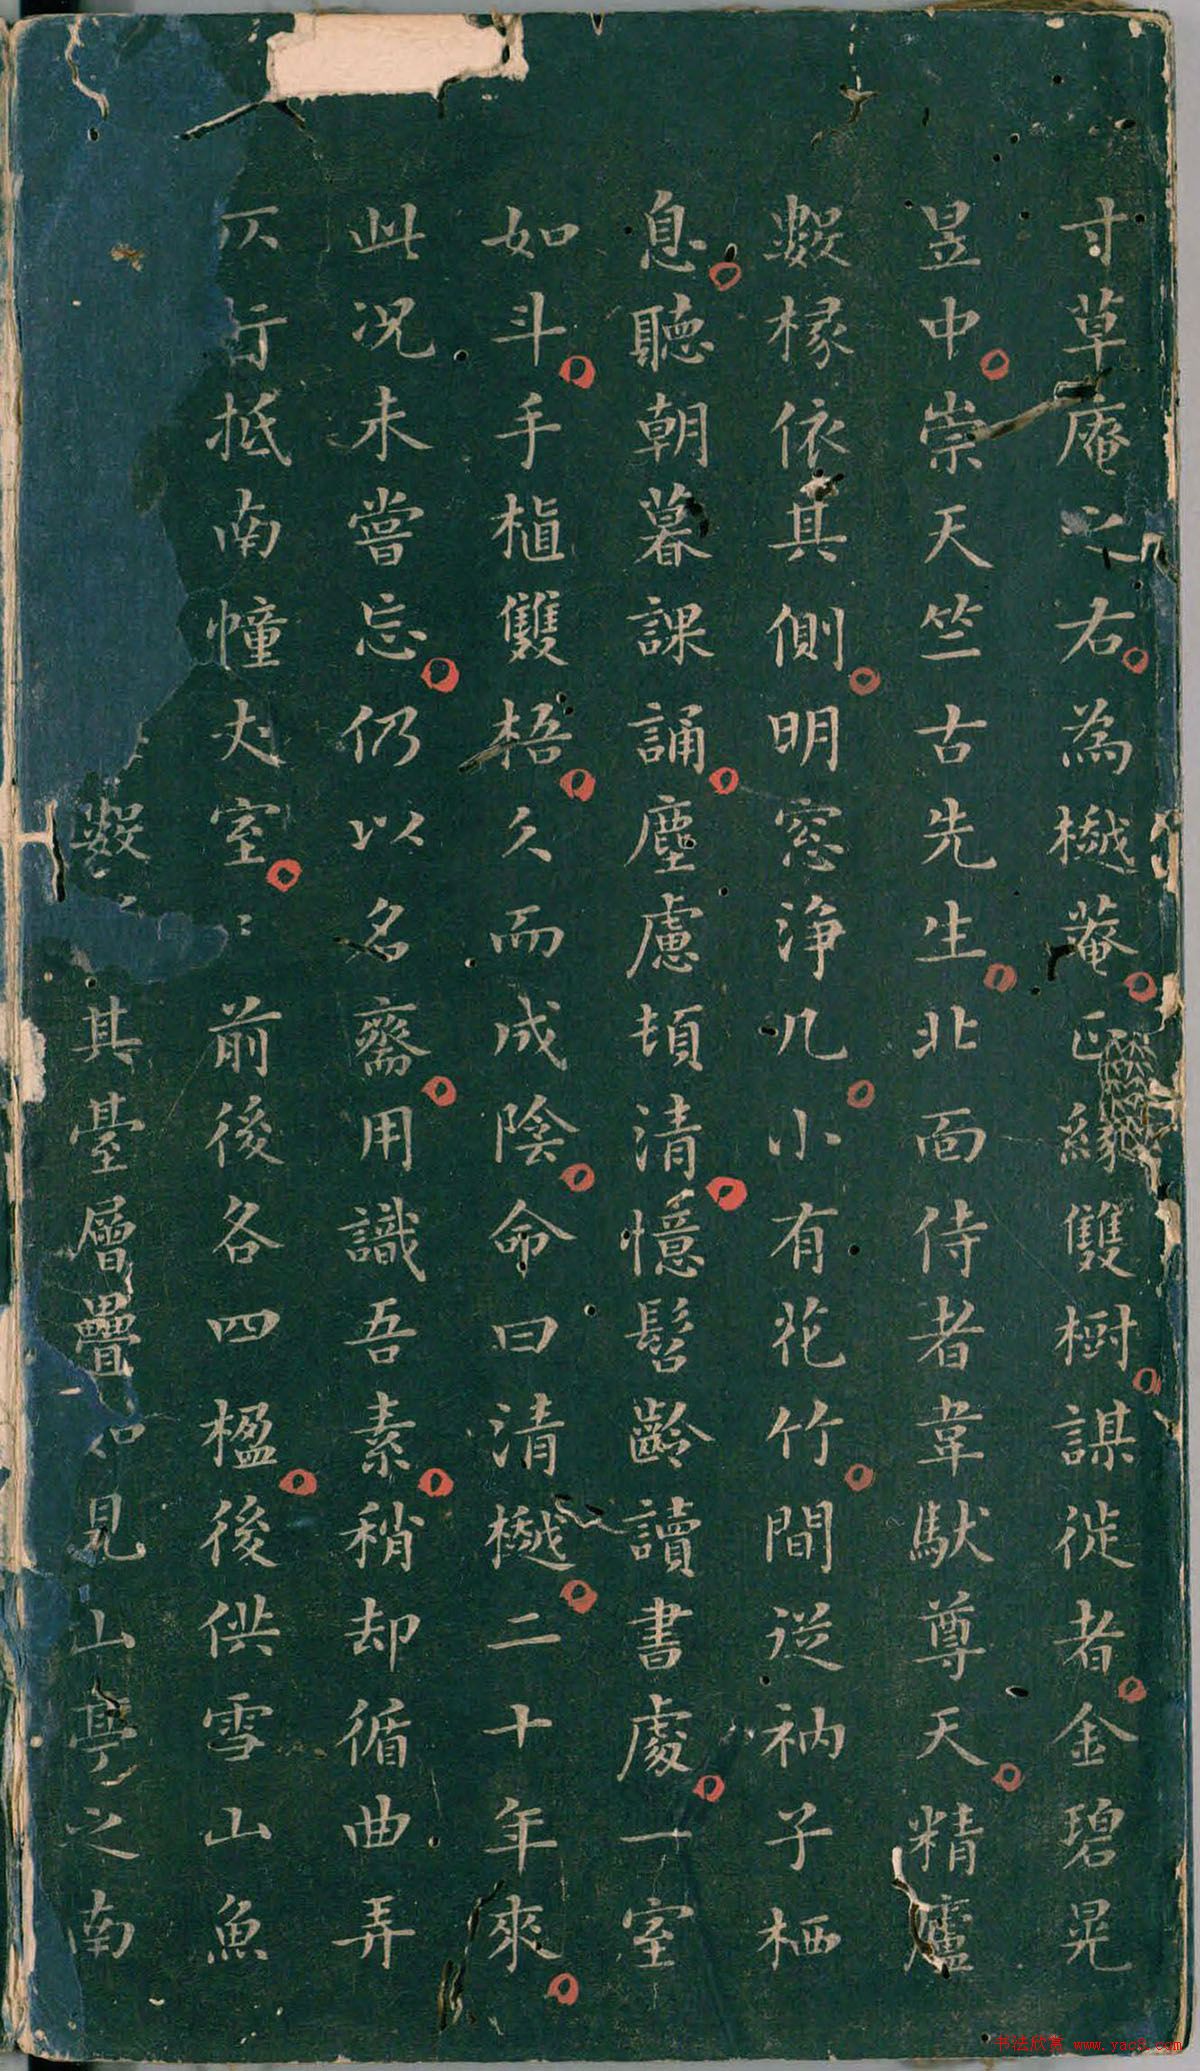 寸草庵之右為樾菴正緣雙樹謀徙者金碧晃
昱中崇天竺古先生北面侍者韋馱尊天精廬
數椽依其側明窓淨几小有花竹間迳衲子栖
息聽朝暮課誦塵慮頓清憶髫齡讀書處一室
如斗手植雙梧久而成陰命曰清樾二十年來
此况未嘗忘仍以名齋用識吾素稍却循曲弄
抵南幢大室前後各四楹後供雪山魚
數其臺層疊見山亭之南
书法欣赏 www.yac8.com